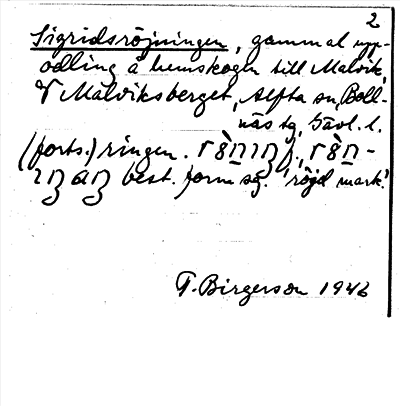 2
Sigridsröjningen, gammal upp-
odling å hemskogen till Malvik,
V Malviksberget, Alfta sn, Boll-
näs tg, Gävl. l.
(forts.) ringen.
best. form sg. 'röjd mark'.
T. Birgerson 1946